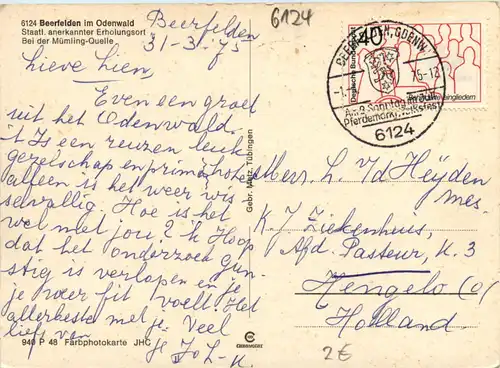 6124 Beerfelden im Odenwald
Staatl. anerkannter Erholungsort
Bei der Mümling-Quelle
Beerfelden
31-3.75
6124
Lieve Lien,
Even een groet
uit het Odenwald.
't Is een reuzen leuk
gezelschap en prima hotel
alleen is het weer wis
selvallig Hoe is het
wel met jou? Ik Hoop
dat het onderzoek gun
stig is verlopen en je
je weer fit voelt. Het
allerbeste met je. Veel
liefs van
je
940 P 48 Farbphotokarte JHC
Gebr. Metz, Tübingen
CEKAMACART
40
Deutsche Bundespost
eingliedern
BEERFELDEN, ODENW
-1. 75-18
Am 2. Sonntag im Juli
Pferdemarkt, Volksfest
6124
Mevr. L. v/d Heyden
mes.
K. J. Ziekenhuis,
Afd. Pasteur, K. 3
Hengelo (O)
Holland.
2€